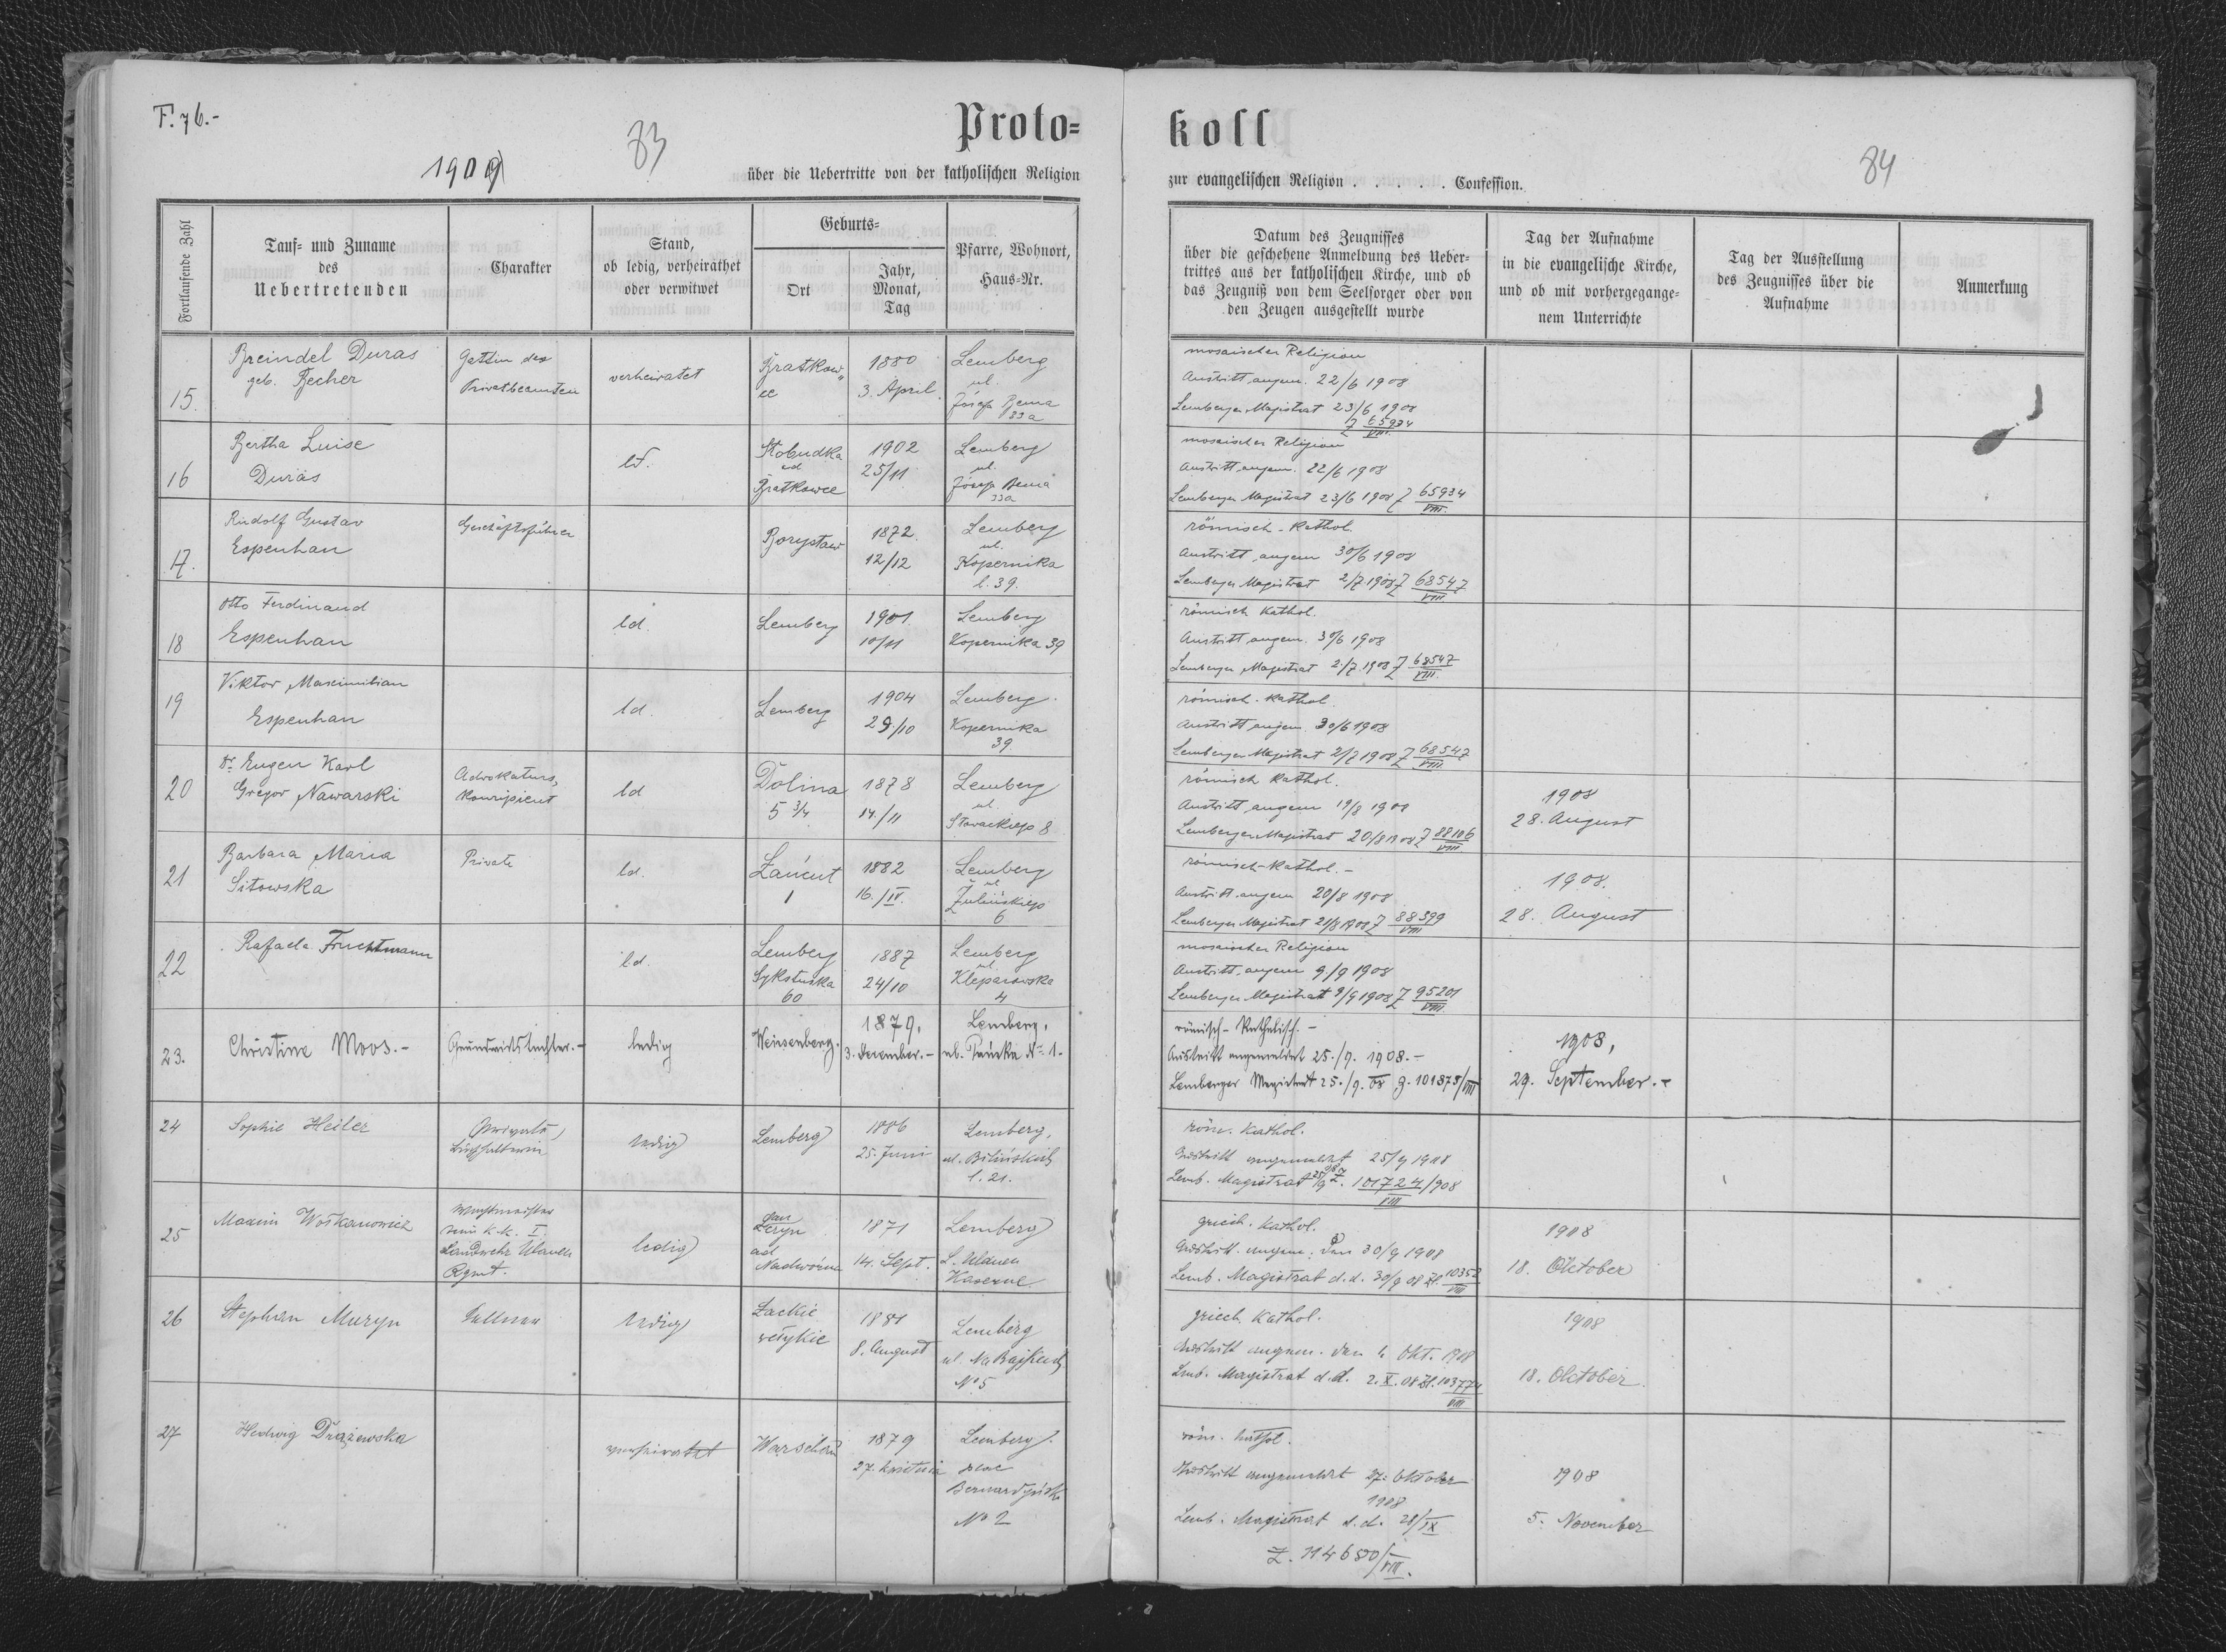 F. 76.-
83
1909
Proto=
über die Uebertritte von der katholischen Religion
Fortlaufende Zahl
Tauf= und Zuname
des
Uebertretenden
Charakter
Stand,
ob ledig, verheirathet
oder verwitwet
Geburts=
Ort
Jahr,
Monat,
Tag
Pfarre, Wohnort,
Haus=Nr.
15.
Breindel Duras
geb. Becher
Gattin des
Privatbeamten
verheiratet
Bratkow„
ce
1880
3. April.
Lemberg
ul.
Józefa Bema
33a
16
Bertha Luise
Duras
ld.
Kobudka
ad
Bratkowce
1902
25/11
Lemberg
ul.
Józefa Bema
33a
17.
Rudolf Gustav
Espenhan
Geschäftsführer
Borysław
1872.
12/12
Lemberg
ul.
Kopernika
l. 39.
18
Otto Ferdinand
Espenhan
ld.
Lemberg
1901.
10/11
Lemberg
Kopernika 39
19
Viktor Maximilian
Espenhan
ld.
Lemberg
1904
29/10
Lemberg.
Kopernika
39
20
Dr. Eugen Karl
Gregor Nawarski
Advokaturs,
Konzipient
ld
Dolina
5 3/4
1878
14./11
Lemberg
ul.
Słowackiego 8
21
Barbara Maria
Sitowska
Private
ld.
Łańcut
1
1882
16./IV.
Lemberg
ul.
Żulińskiego
6
22
Rafaela Fruchtmann
ld.
Lemberg
Sykstuska
60
1887
24/10
Lemberg
ul.
Kleparowska
4
23.
Christine Moos.-
Grundwirtstochter.-
ledig
Weinsenberg.
1879.
3. dezember.-
Lemberg.
ul. Pańska No. 1.-
24
Sophie Heiler
Private
Buchhalterin
ledig
Lemberg
1886
25. Juni
Lemberg,
ul. Bilińskich
l. 21.
25
Maxim Wołkanowicz
Wachtmeister
beim k.k. I.
Landwehr Ulanen
Rgmt.
ledig
ad
Nadwórna
1871
14. Sept.
Lemberg
L. Ulanen
Kaserne
26
Stephan Muryn
ledig
Łackie
wełykie
1881
8. August
Lemberg
ul. Na Bajkach
No 5
27
Hedwig Drążewska
verheiratet
Warschau
1879
27. kwietnia
Lemberg.
plac
Bernardyński
No 2
koll
84
zur evangelischen Religion . . . . . Confession.
Datum des Zeugnisses
über die geschehene Anmeldung des Ueber=
trittes aus der katholischen Kirche, und ob
das Zeugniß von dem Seelsorger oder von
den Zeugen ausgestellt wurde
Tag der Aufnahme
in die evangelische Kirche,
und ob mit vorhergegange=
nem Unterrichte
Tag der Ausstellung
des Zeugnisses über die
Aufnahme
Anmerkung
mosaischer Religion
Austritt angem. 22/6 1908
Lemberger Magistrat 23/6 1908
Z 65934
VIII.
mosaischer Religion
Austritt angem. 22/6 1908
Lemberger Magistrat 23/6 1908 Z 65934
VIII.
römisch-kathol.
Austritt angem 30/6 1908
Lemberger Magistrat 2/7 1908 Z 68547
VIII
römisch kathol.
Austritt angem. 30/6 1908
Lemberger Magistrat 2/7 1908 Z 68547
VIII.
römisch-kathol.
Austritt angem 30/6 1908
Lemberger Magistrat 2/7 1908 Z 68547
VIII
römisch kathol.
Austritt angem 19/8 1908
Lemberger Magistrat 20/8 1908 Z 88106
VIII
1908
28. August
römisch-kathol.-
Austritt angem 20/8 1908
Lemberger Magistrat 21/8 1908 Z 88399
VIII
1908.
28. August
mosaischer Religion
Austritt angem 9/9 1908
Lemberger Magistrat 9/9 1908 Z 95201
VIII
römisch-Katholisch.-
Austritt angemeldet 25./9. 1908.-
Lemberger Magistrat 25./9. 08 Z. 101878/VIII
1908,
29. September.-
röm. Kathol.
Austritt angemeldet 25/9 1908
Lemb. Magistrat 25/9 08 Z. 101724/908
VIII
griech. Kathol.
Austritt angem: den 30/9 1908
Lemb. Magistrat d.d. 30/9 08 Zl. 10352
VIII
1908
18. Oktober
griech. Kathol.
Austritt angem. den 1. Okt. 1908
Lemb. Magistrat d.d. 2. X. 08 Zl. 103774
VIII
1908
18. Oktober.
röm. kathol.
Austritt angemeldet 27. Oktober
1908
Lemb. Magistrat d.d. 28/IX
Z. 114680/VIII.
1908
5. November